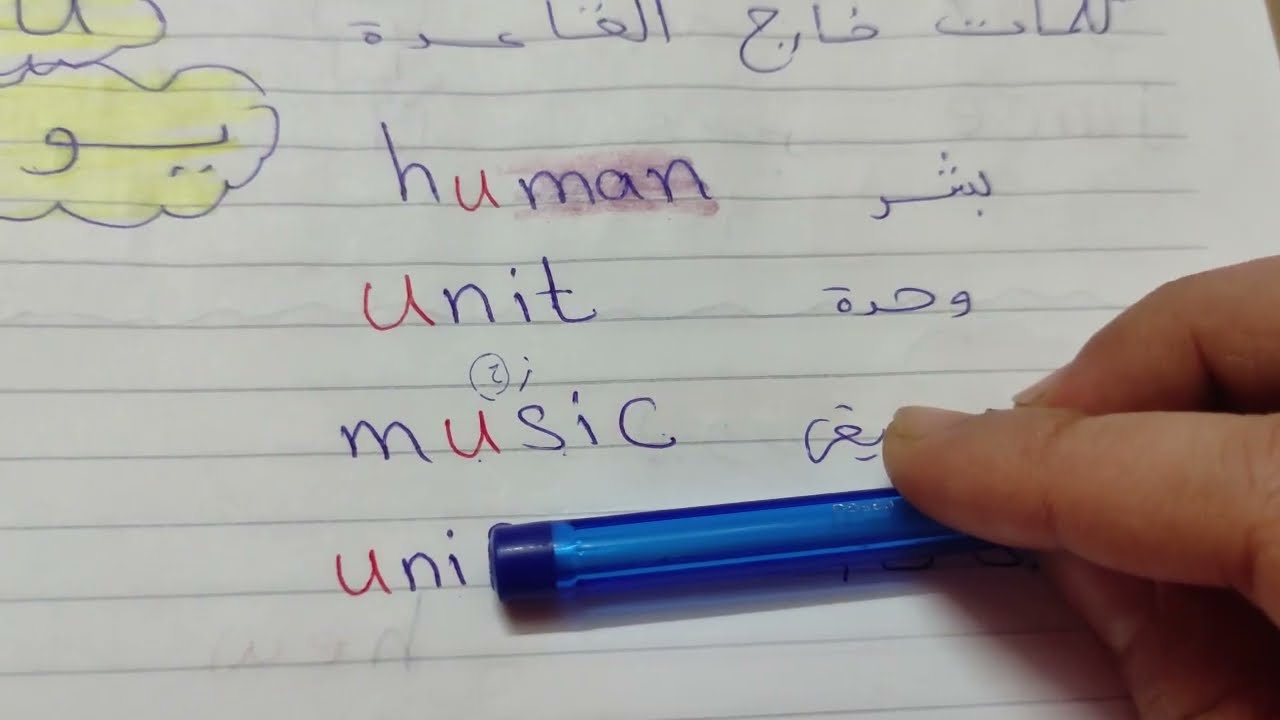 u كلمات خارج القاعدة
يو human بشر
unit وحدة
ز
music
uni